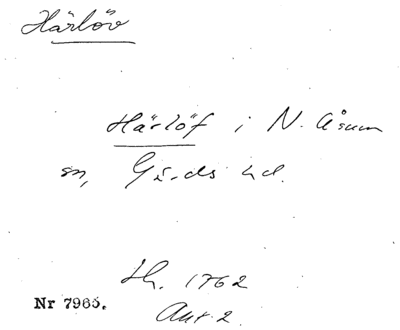 Härlöv
Härlöf i N. Åsum
sn, Gärds hd.
Lh. 1762
Akt 2.
Nr 7965.